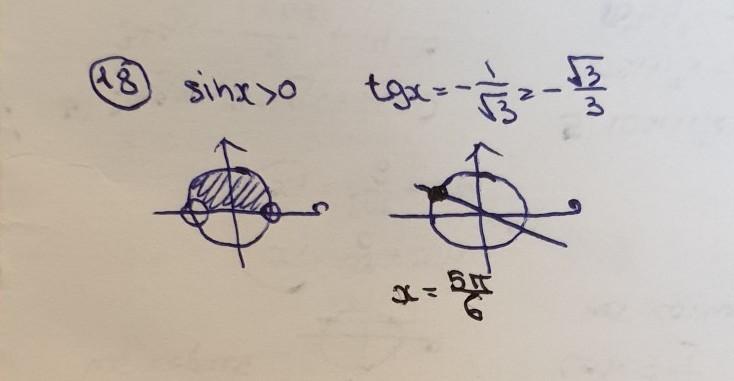 18 sinx>0 tgx = -1/√3 = -√3/3
x = 5π/6